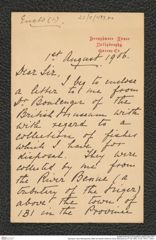 1st August 1906.
Dear Sir,
I beg to enclose
a letter to me from
Dr Boulenger of the
British Museum with
with regard to a
collection of fishes
which I have for
disposal. They were
collected by me from
the River Benue (a
tributary of the Niger)
above the town of
IBI in the Province